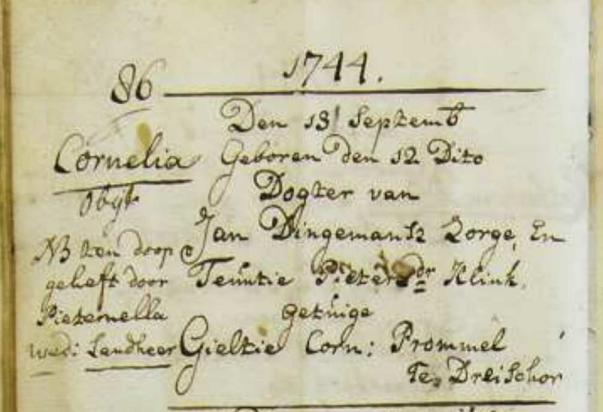 1744.
86
Den 13 Septemb
Cornelia Geboren den 12 Dito
Obyt
Dogter van
Jan Dingemansz Zorge, En
NB ten doop
geheft door
Teuntie Pieters dr Klink.
Pieternella
getuige
wed: Landheer
Gieltie Corn: Prommel
Te, Dreischor